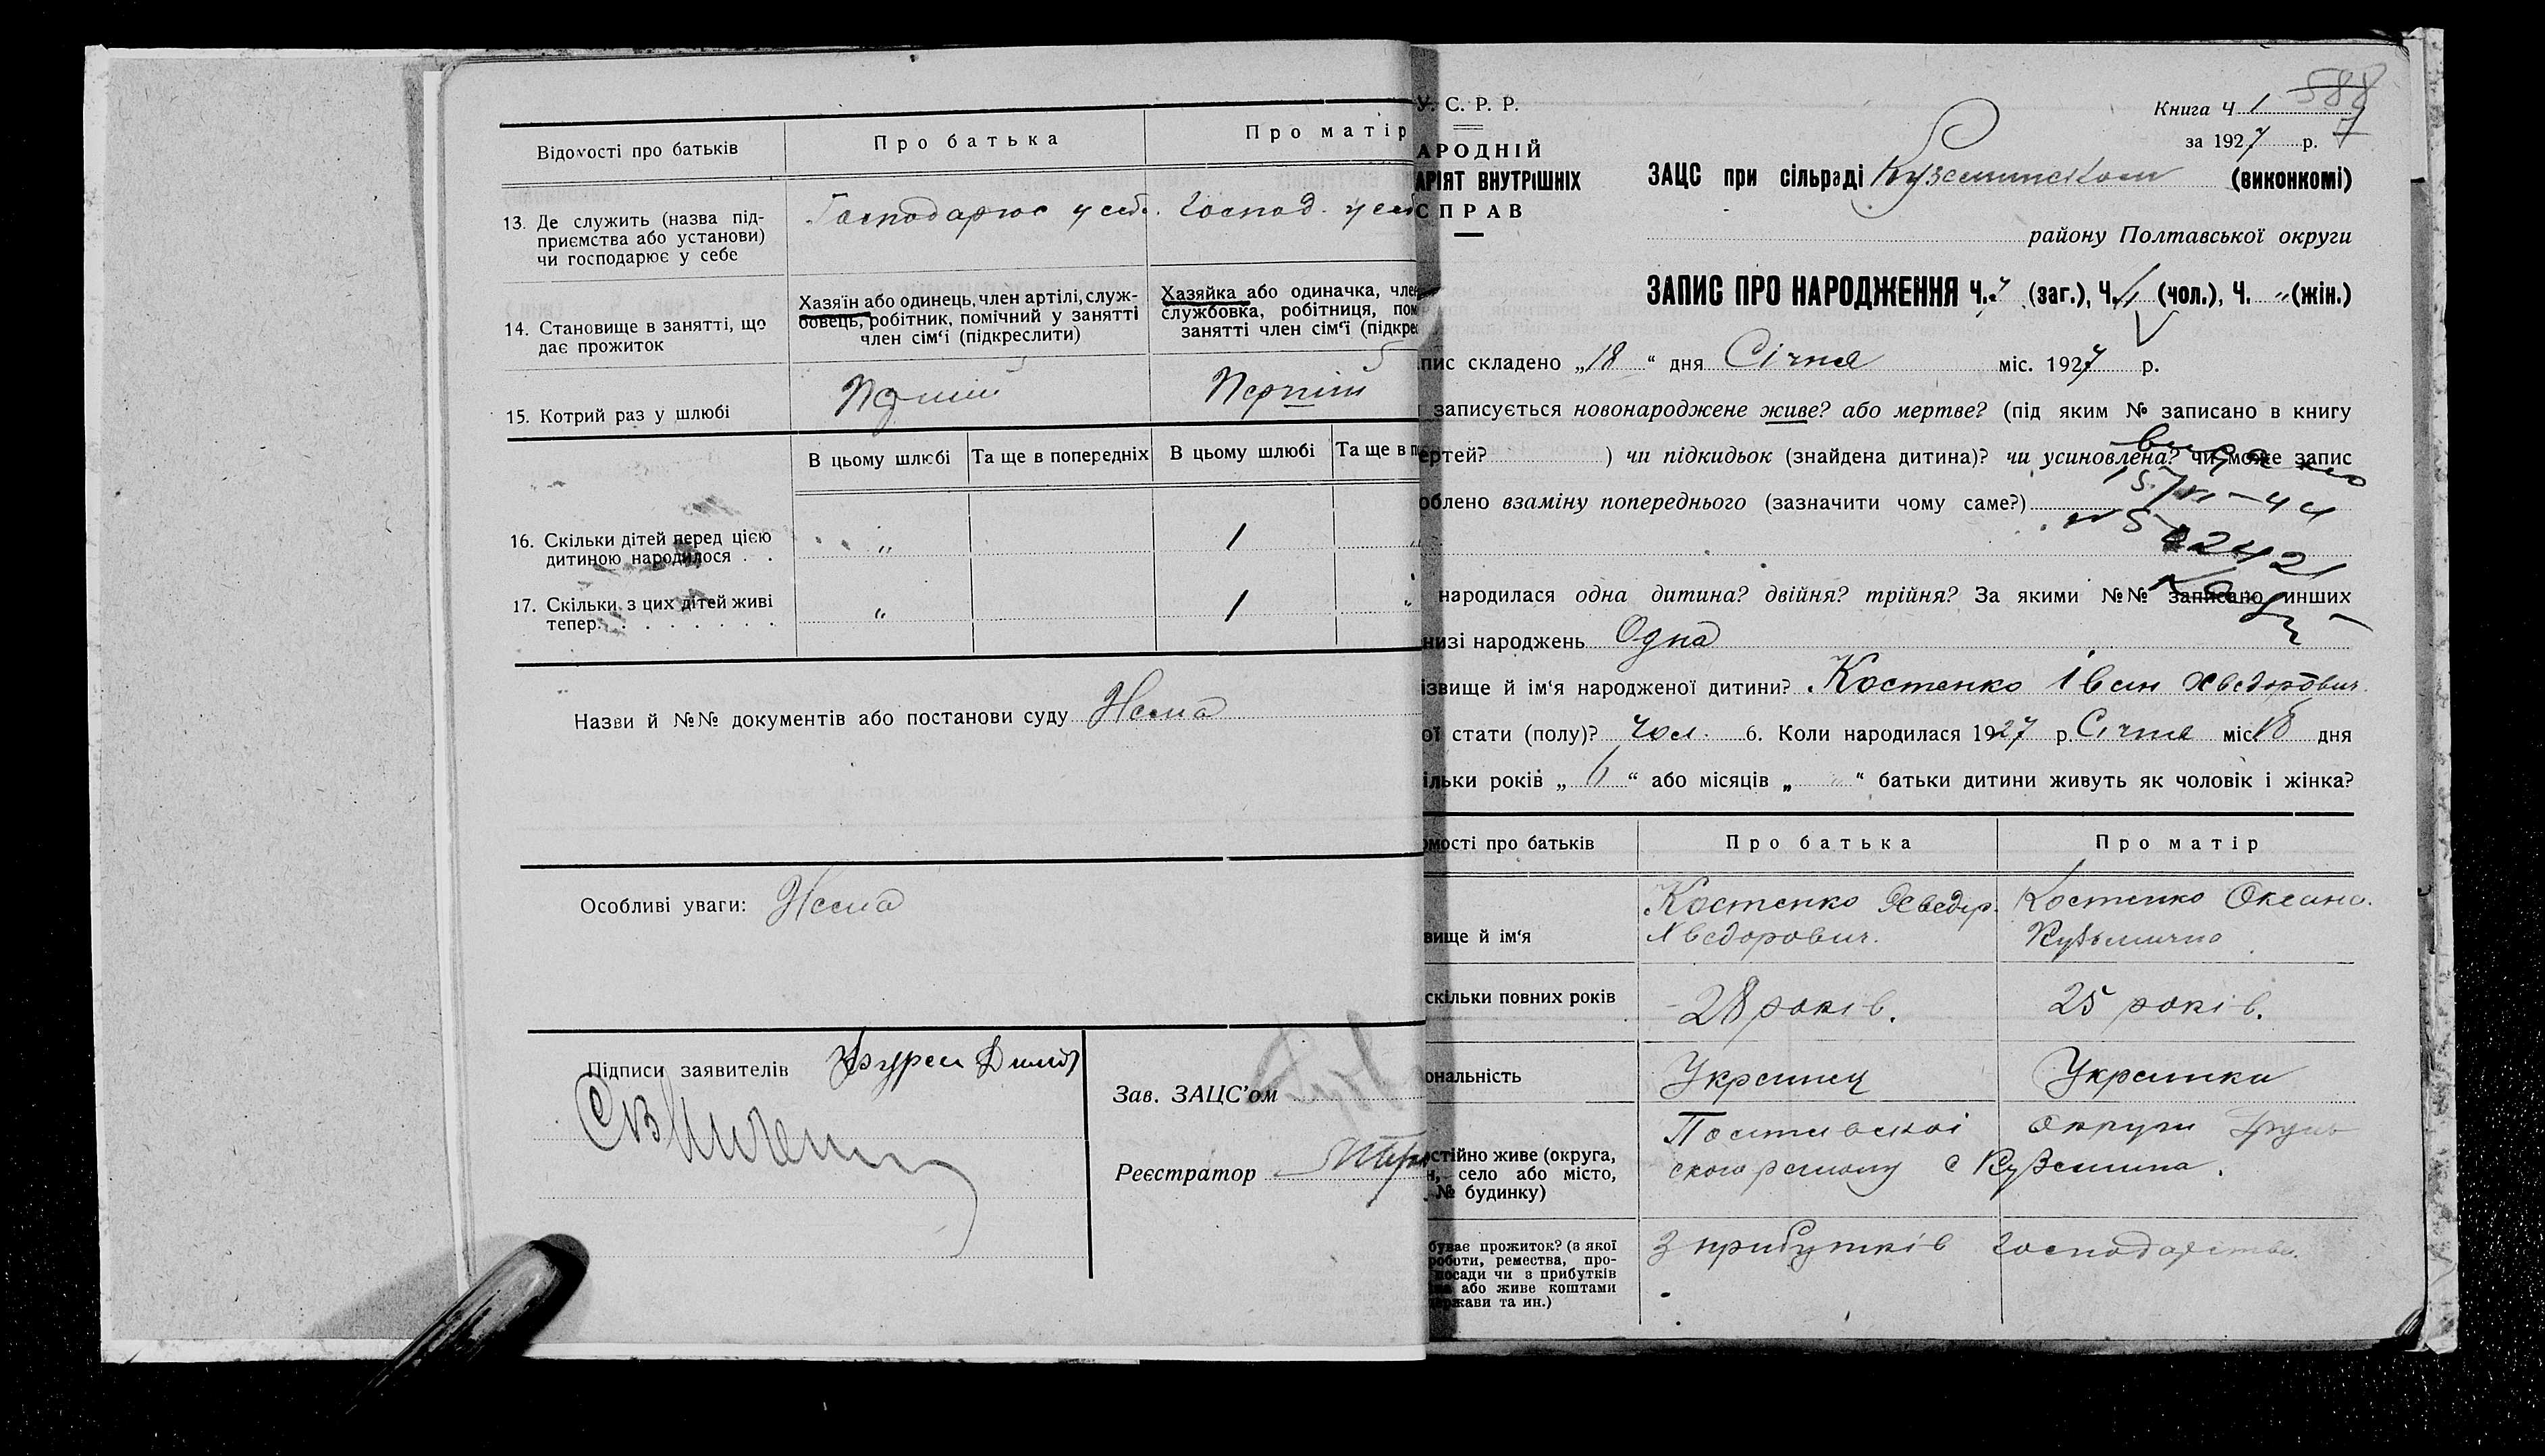 Відомості про батьків
Про батька
Про матір
13. Де служить (назва під-
приємства або установи)
чи господарює у себе
Господарює у себе.
Господ. у себ
14. Становище в занятті, що
дає прожиток
Хазяїн або одинець, член артілі, служ-
бовець, робітник, помічний у занятті
член сім'ї (підкреслити)
Хазяйка або одиначка, член
службовка, робітниця, пом
занятті член сім'ї (підкре
15. Котрий раз у шлюбі
Перший
Перший
В цьому шлюбі
Та ще в попередніх
В цьому шлюбі
Та ще в п
16. Скільки дітей перед цією
дитиною народилося . .
"
1
"
17. Скільки з цих дітей живі
тепер. . . . . . . .
"
1
"
Назви й №№ документів або постанови суду Нема
Особливі уваги: Нема
Підписи заявителів
Зав. ЗАЦС'ом
Реєстратор
У. С. Р. Р.
АРОДНІЙ
АРІЯТ ВНУТРІШНІХ
СПРАВ
588
Книга Ч 1
7
за 1927 р.
ЗАЦС при сільраді Куземинском (виконкомі)
району Полтавської округи
ЗАПИС ПРО НАРОДЖЕННЯ Ч. 7 (заг.), Ч. (чол.), Ч. " (жін.)
пис складено „18" дня Січня міс. 1927 р.
записується новонароджене живе? або мертве? (під яким № записано в книгу
ертей? ) чи підкидьок (знайдена дитина)? чи усиновлена? чи може запис
облено взаміну попереднього (зазначити чому саме?)
народилася одна дитина? двійня? трійня? За якими №№ записано инших
низі народжень Одна
ізвище й ім'я народженої дитини? Костенко Іван Хведорович.
ої стати (полу)? чол. 6. Коли народилася 1927 р Січня міс. 18 дня
ільки років „ 6 " або місяців „ " батьки дитини живуть як чоловік і жінка?
омості про батьків
Про батька
Про матір
вище й ім'я
Костенко Хведір.
Хведорович.
Костенко Оксана.
Кузьмична
скільки повних років
28 років.
25 років.
ональність
Украинец
Украинка
остійно живе (округа,
н, село або місто,
№ будинку)
Полтавської округи Грунь
ского району с Куземина.
буває прожиток? (з якої
роботи, ремества, про-
посади чи з прибутків
або живе коштами
держави та ин.)
З прибутків господарства.